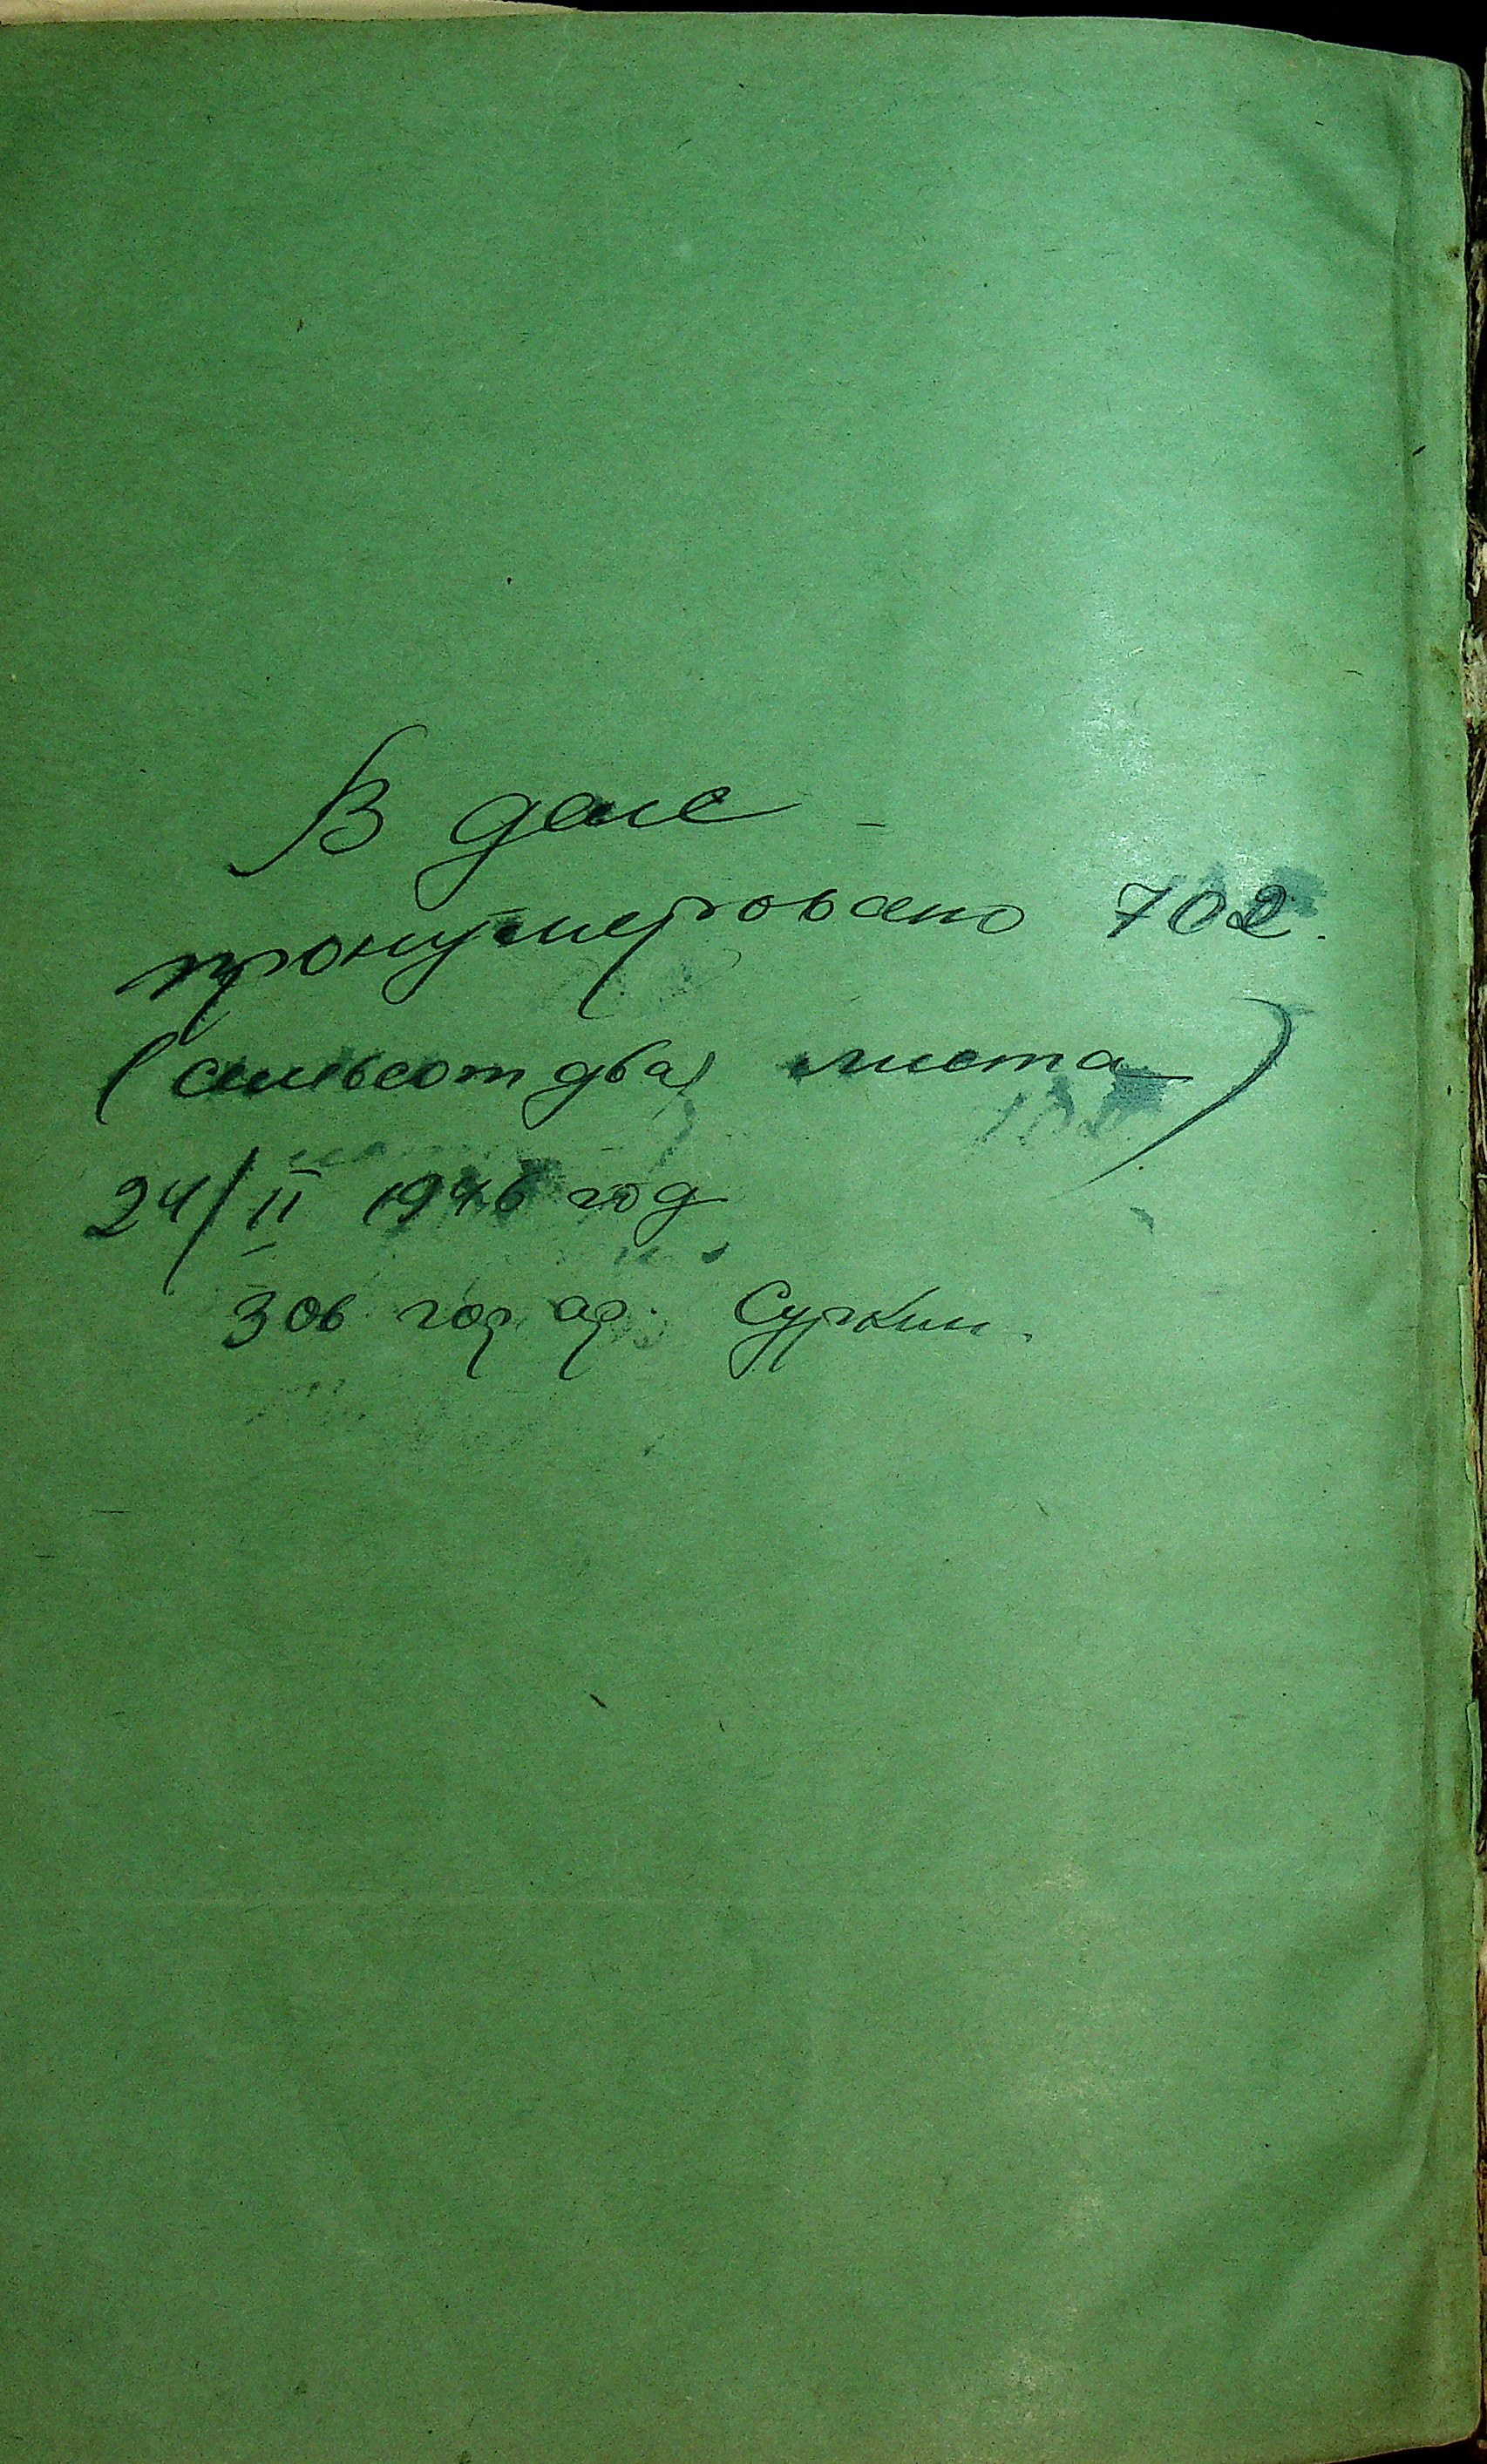 В деле
пронумеровано 702.
(семьсот два) листа)
24/II 1946 год
Зав гор ар. Суркин.